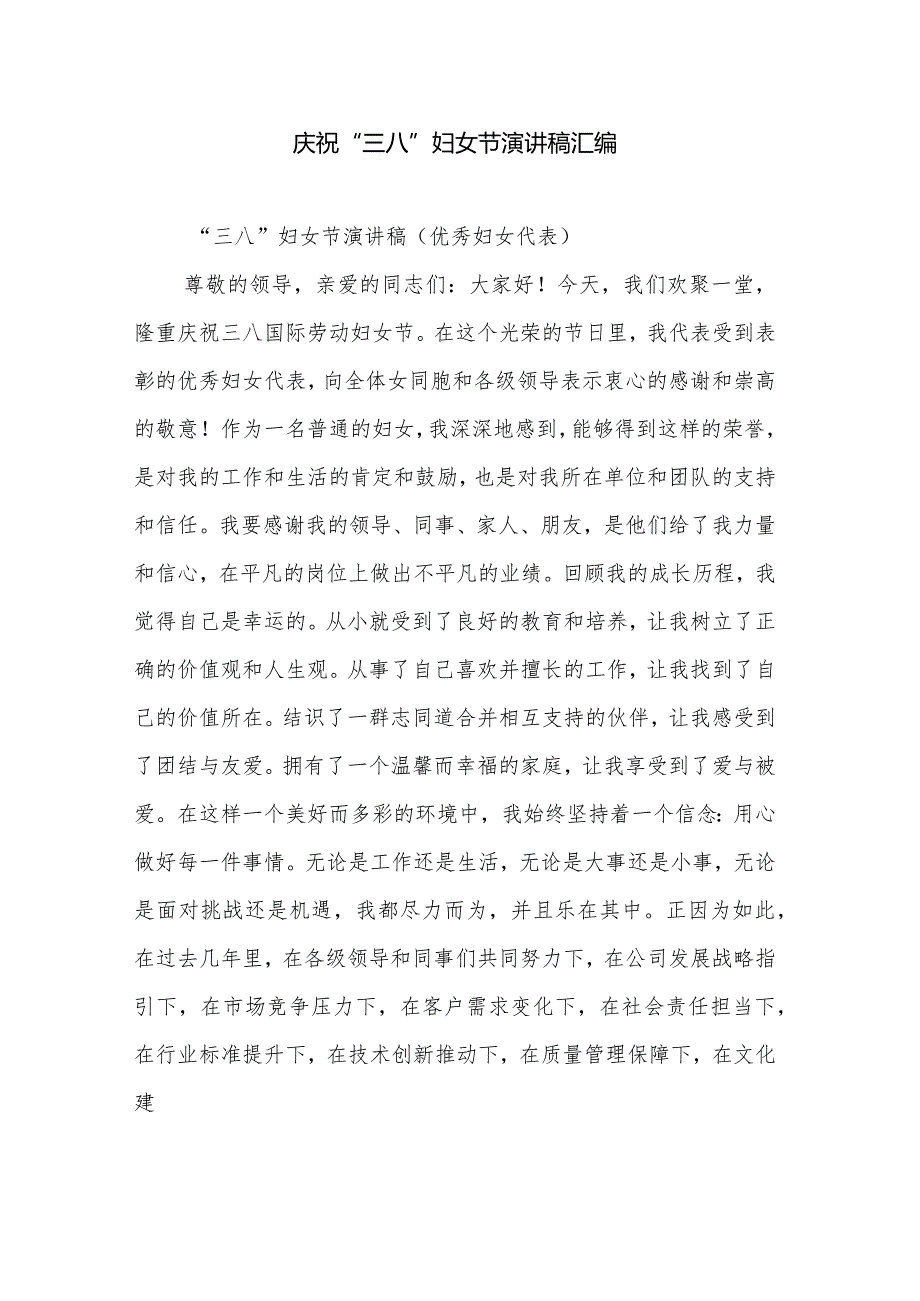 庆祝“三八”妇女节演讲稿汇编
“三八”妇女节演讲稿（优秀妇女代表）
尊敬的领导，亲爱的同志们：大家好！今天，我们欢聚一堂，
隆重庆祝三八国际劳动妇女节。在这个光荣的节日里，我代表受到表
彰的优秀妇女代表，向全体女同胞和各级领导表示衷心的感谢和崇高
的敬意！作为一名普通的妇女，我深深地感到，能够得到这样的荣誉，
是对我的工作和生活的肯定和鼓励，也是对我所在单位和团队的支持
和信任。我要感谢我的领导、同事、家人、朋友，是他们给了我力量
和信心，在平凡的岗位上做出不平凡的业绩。回顾我的成长历程，我
觉得自己是幸运的。从小就受到了良好的教育和培养，让我树立了正
确的价值观和人生观。从事了自己喜欢并擅长的工作，让我找到了自
己的价值所在。结识了一群志同道合并相互支持的伙伴，让我感受到
了团结与友爱。拥有了一个温馨而幸福的家庭，让我享受到了爱与被
爱。在这样一个美好而多彩的环境中，我始终坚持着一个信念：用心
做好每一件事情。无论是工作还是生活，无论是大事还是小事，无论
是面对挑战还是机遇，我都尽力而为，并且乐在其中。正因为如此，
在过去几年里，在各级领导和同事们共同努力下，在公司发展战略指
引下，在市场竞争压力下，在客户需求变化下，在社会责任担当下，
在行业标准提升下，在技术创新推动下，在质量管理保障下，在文化
建